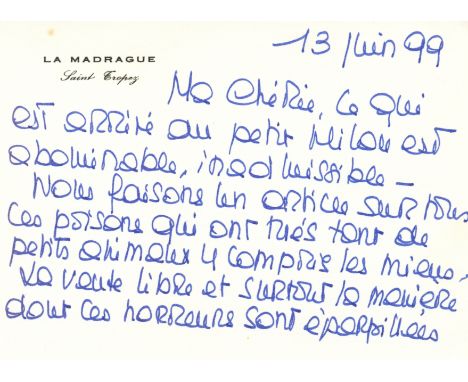 13 Juin 99
LA MADRAGUE
Saint-Tropez
Ma Chérie, Ce qui
est arrivé au petit Milou est
abominable, inadmissible –
Nous faisons un article sur tous
Ces poisons qui ont tués tant de
petits animaux y compris les miens,
La vente libre et surtout la manière
dont ces horreurs sont éparpillées